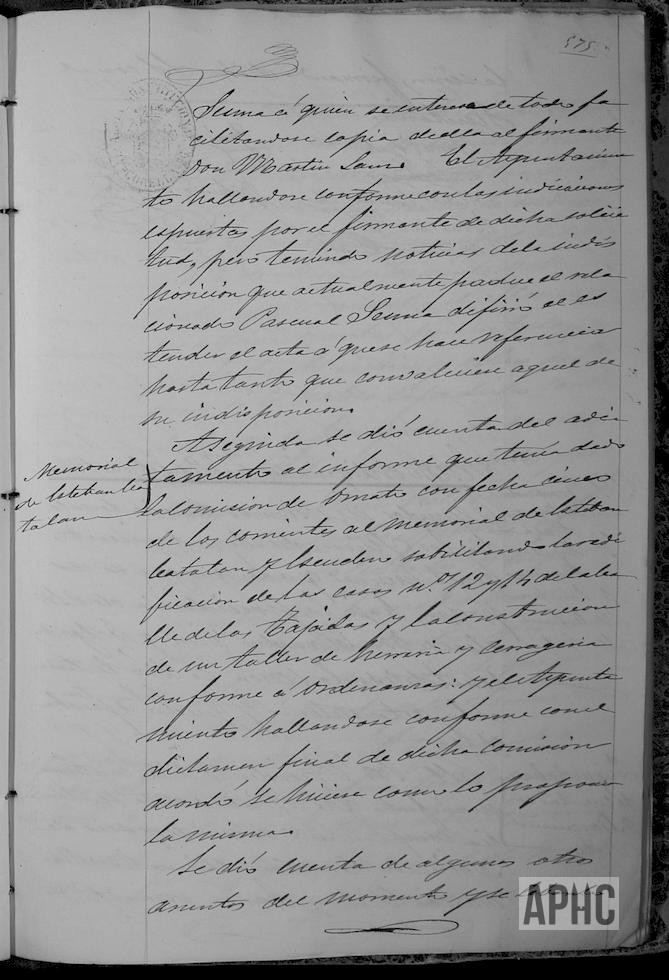 575
Serma á quien se enterase de todo fa
cilitandose copia de ella al firmante
Don Martin Sans. El Ayuntamien
to hallandose conforme con las indicaciones
espuestas por el firmante de dicha solici
tud, pero teniendo noticias de la indis
posicion que actualmente padece el rela
cionado Pascual Serma difirió el es
tender el acta á que se hace referencia
hasta tanto que convaleciere aquel de
su indisposicion.
Memorial
de Esteban Ca
talan
A seguida se dió cuenta del adi
tamento al informe que tenia dado
la Comision de Ornato con fecha cinco
de los corrientes al memorial de Esteban
Catalan y Escudero solicitando la redi
ficacion de las casas nº 12 y 14 de la ca
lle de las Tajadas y la construccion
de un taller de herreria y cerrageria
conforme á Ordenanzas: y el Ayunta
miento hallandose conforme con el
dictamen final de dicha Comision
acordó se hiciese como lo proponia
la misma.
Se dió cuenta de algunos otros
asuntos del momento y se
APHC